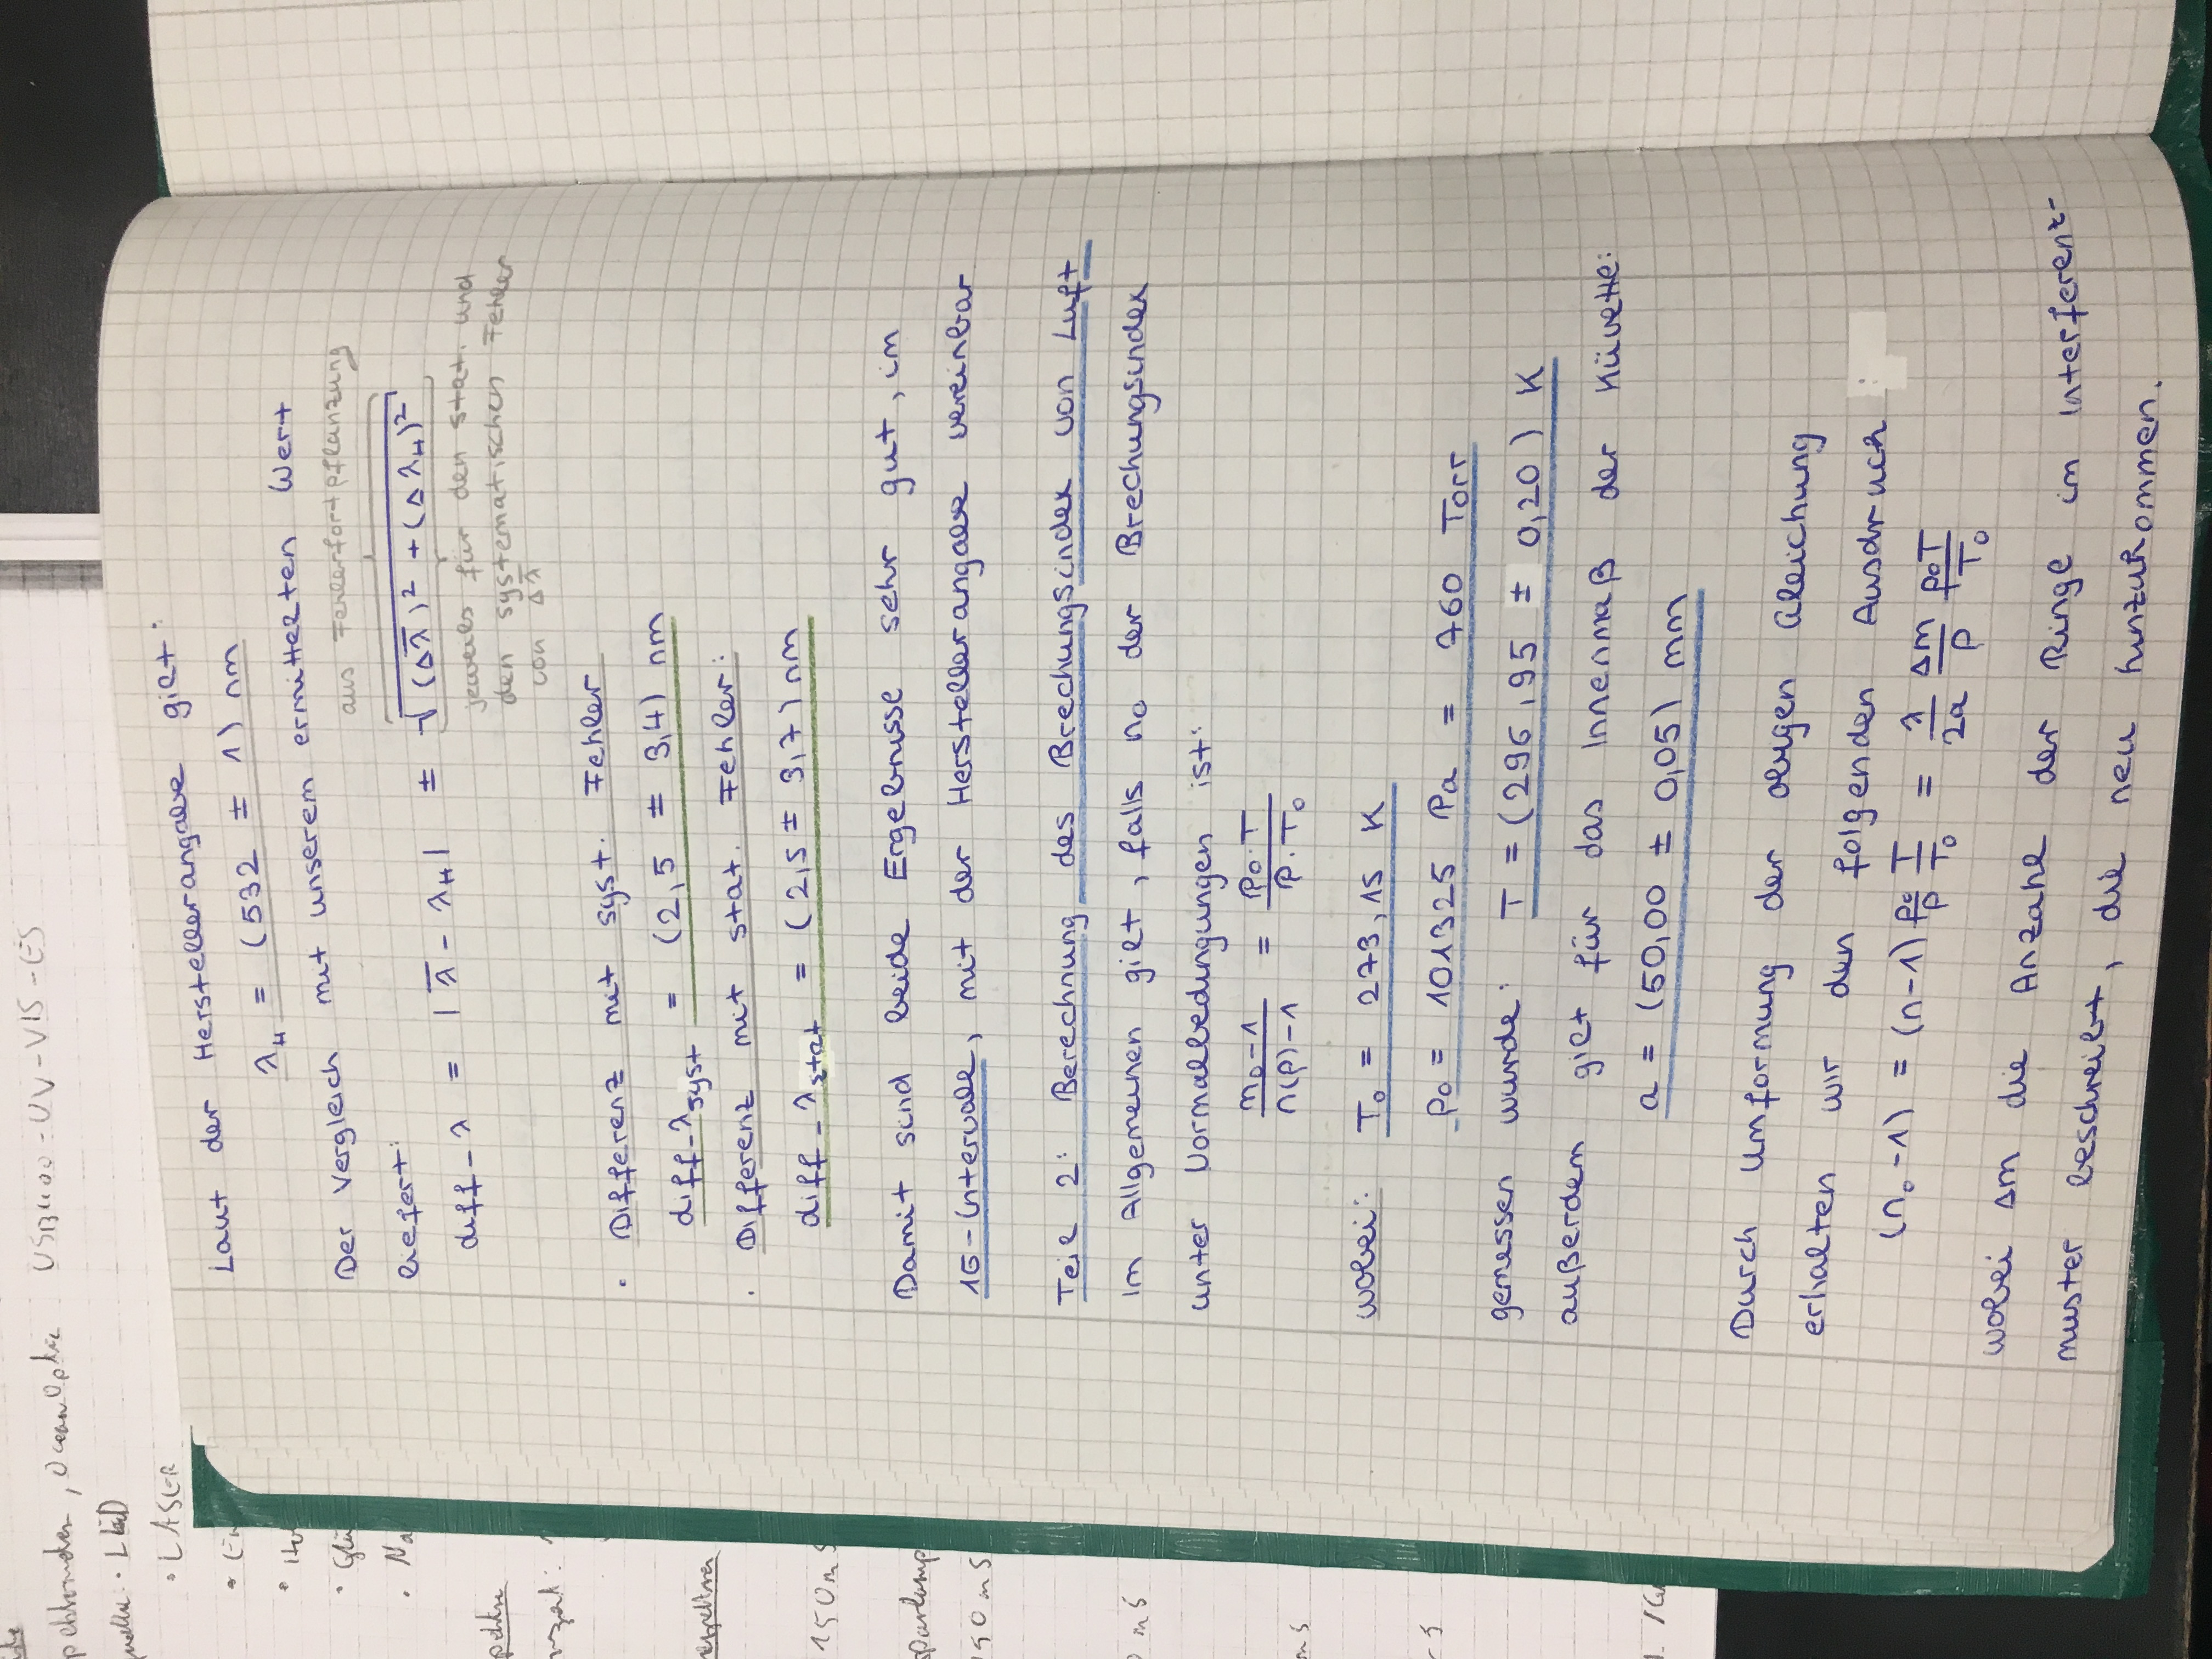 pektrometer, Ocean Optic USB4000-UV-VIS-ES
quelle: · LED
· LASER
Laut der Herstellerangabe gilt:
λ_H = (532 ± 1) nm
Der Vergleich mit unserem ermittelten Wert
aus Fehlerfortpflanzung
liefert:
diff-λ = |λ̅ - λ_H| ± √((Δλ̅)² + (Δλ_H)²)
jeweils für den stat. und
den systematischen Fehler
von Δλ̅
· Differenz mit syst. Fehler
diff-λ_syst = (2,5 ± 3,4) nm
· Differenz mit stat. Fehler:
diff-λ_stat = (2,5 ± 3,7) nm
Damit sind beide Ergebnisse sehr gut, im
1σ-Intervall, mit der Herstellerangabe vereinbar
Teil 2: Berechnung des Brechungsindex von Luft
Im Allgemeinen gilt, falls n₀ der Brechungsindex
unter Normalbedingungen ist:
(n₀-1)/(n(p)-1) = (p₀·T)/(p·T₀)
wobei: T₀ = 273,15 K
p₀ = 101325 Pa = 760 Torr
gemessen wurde: T = (296,95 ± 0,20) K
außerdem gilt für das Innenmaß der Küvette:
a = (50,00 ± 0,05) mm
Durch Umformung der obigen Gleichung
erhalten wir den folgenden Ausdruck:
(n₀-1) = (n-1) p₀/p T/T₀ = λ/2a Δm/p p₀T/T₀
wobei Δm die Anzahl der Ringe im Interferenz-
muster beschreibt, die neu hinzukommen.
150 mS
150 mS
mS